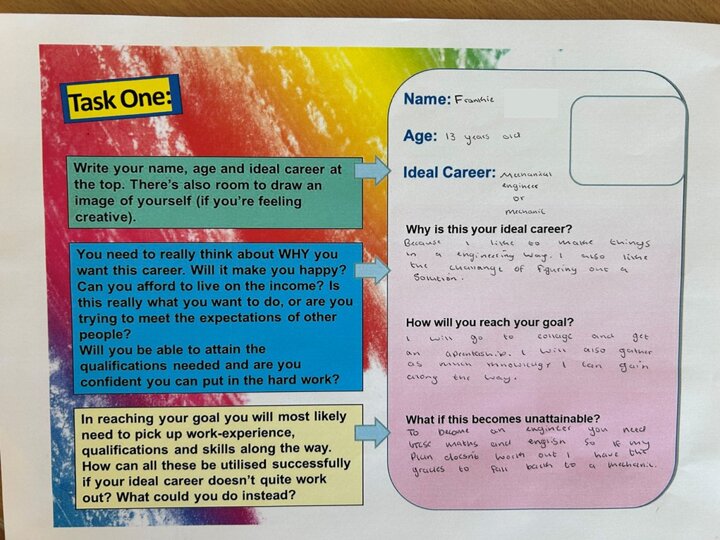 Task One:
Write your name, age and ideal career at
the top. There's also room to draw an
image of yourself (if you're feeling
creative).
You need to really think about WHY you
want this career. Will it make you happy?
Can you afford to live on the income? Is
this really what you want to do, or are you
trying to meet the expectations of other
people?
Will you be able to attain the
qualifications needed and are you
confident you can put in the hard work?
In reaching your goal you will most likely
need to pick up work-experience,
qualifications and skills along the way.
How can all these be utilised successfully
if your ideal career doesn't quite work
out? What could you do instead?
Name: Frankie
Age: 13 years old
Ideal Career: Mechanical
engineer
or
mechanic
Why is this your ideal career?
Because I like to make things
in a engineering way. I also like
the of figuring out a
solution.
How will you reach your goal?
I will go to collage and get
an I will also gather
as much knowledge I can gain
along the way.
What if this becomes unattainable?
To become an engineer you need
maths and english so if my
plan doesn't work out I have the
grades to fall back to a mechanic.